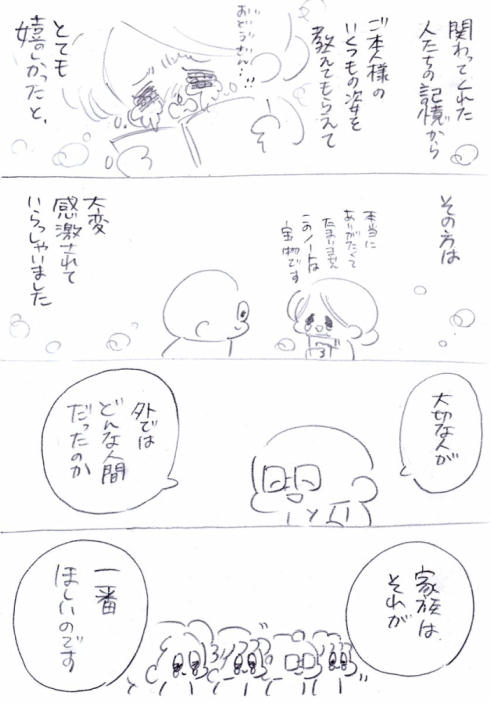 関わってくれた
人たちの記憶から
ご本人様の
いくつもの姿を
教えてもらえて
おとうさん…!!
とても
嬉しかったと、
その方は
本当に
ありがたくて
たまりません
このノートは
宝物です
大変
感激されて
いらっしゃいました
大切な人が
外では
どんな人間
だったのか
家族は
それが
一番
ほしいのです